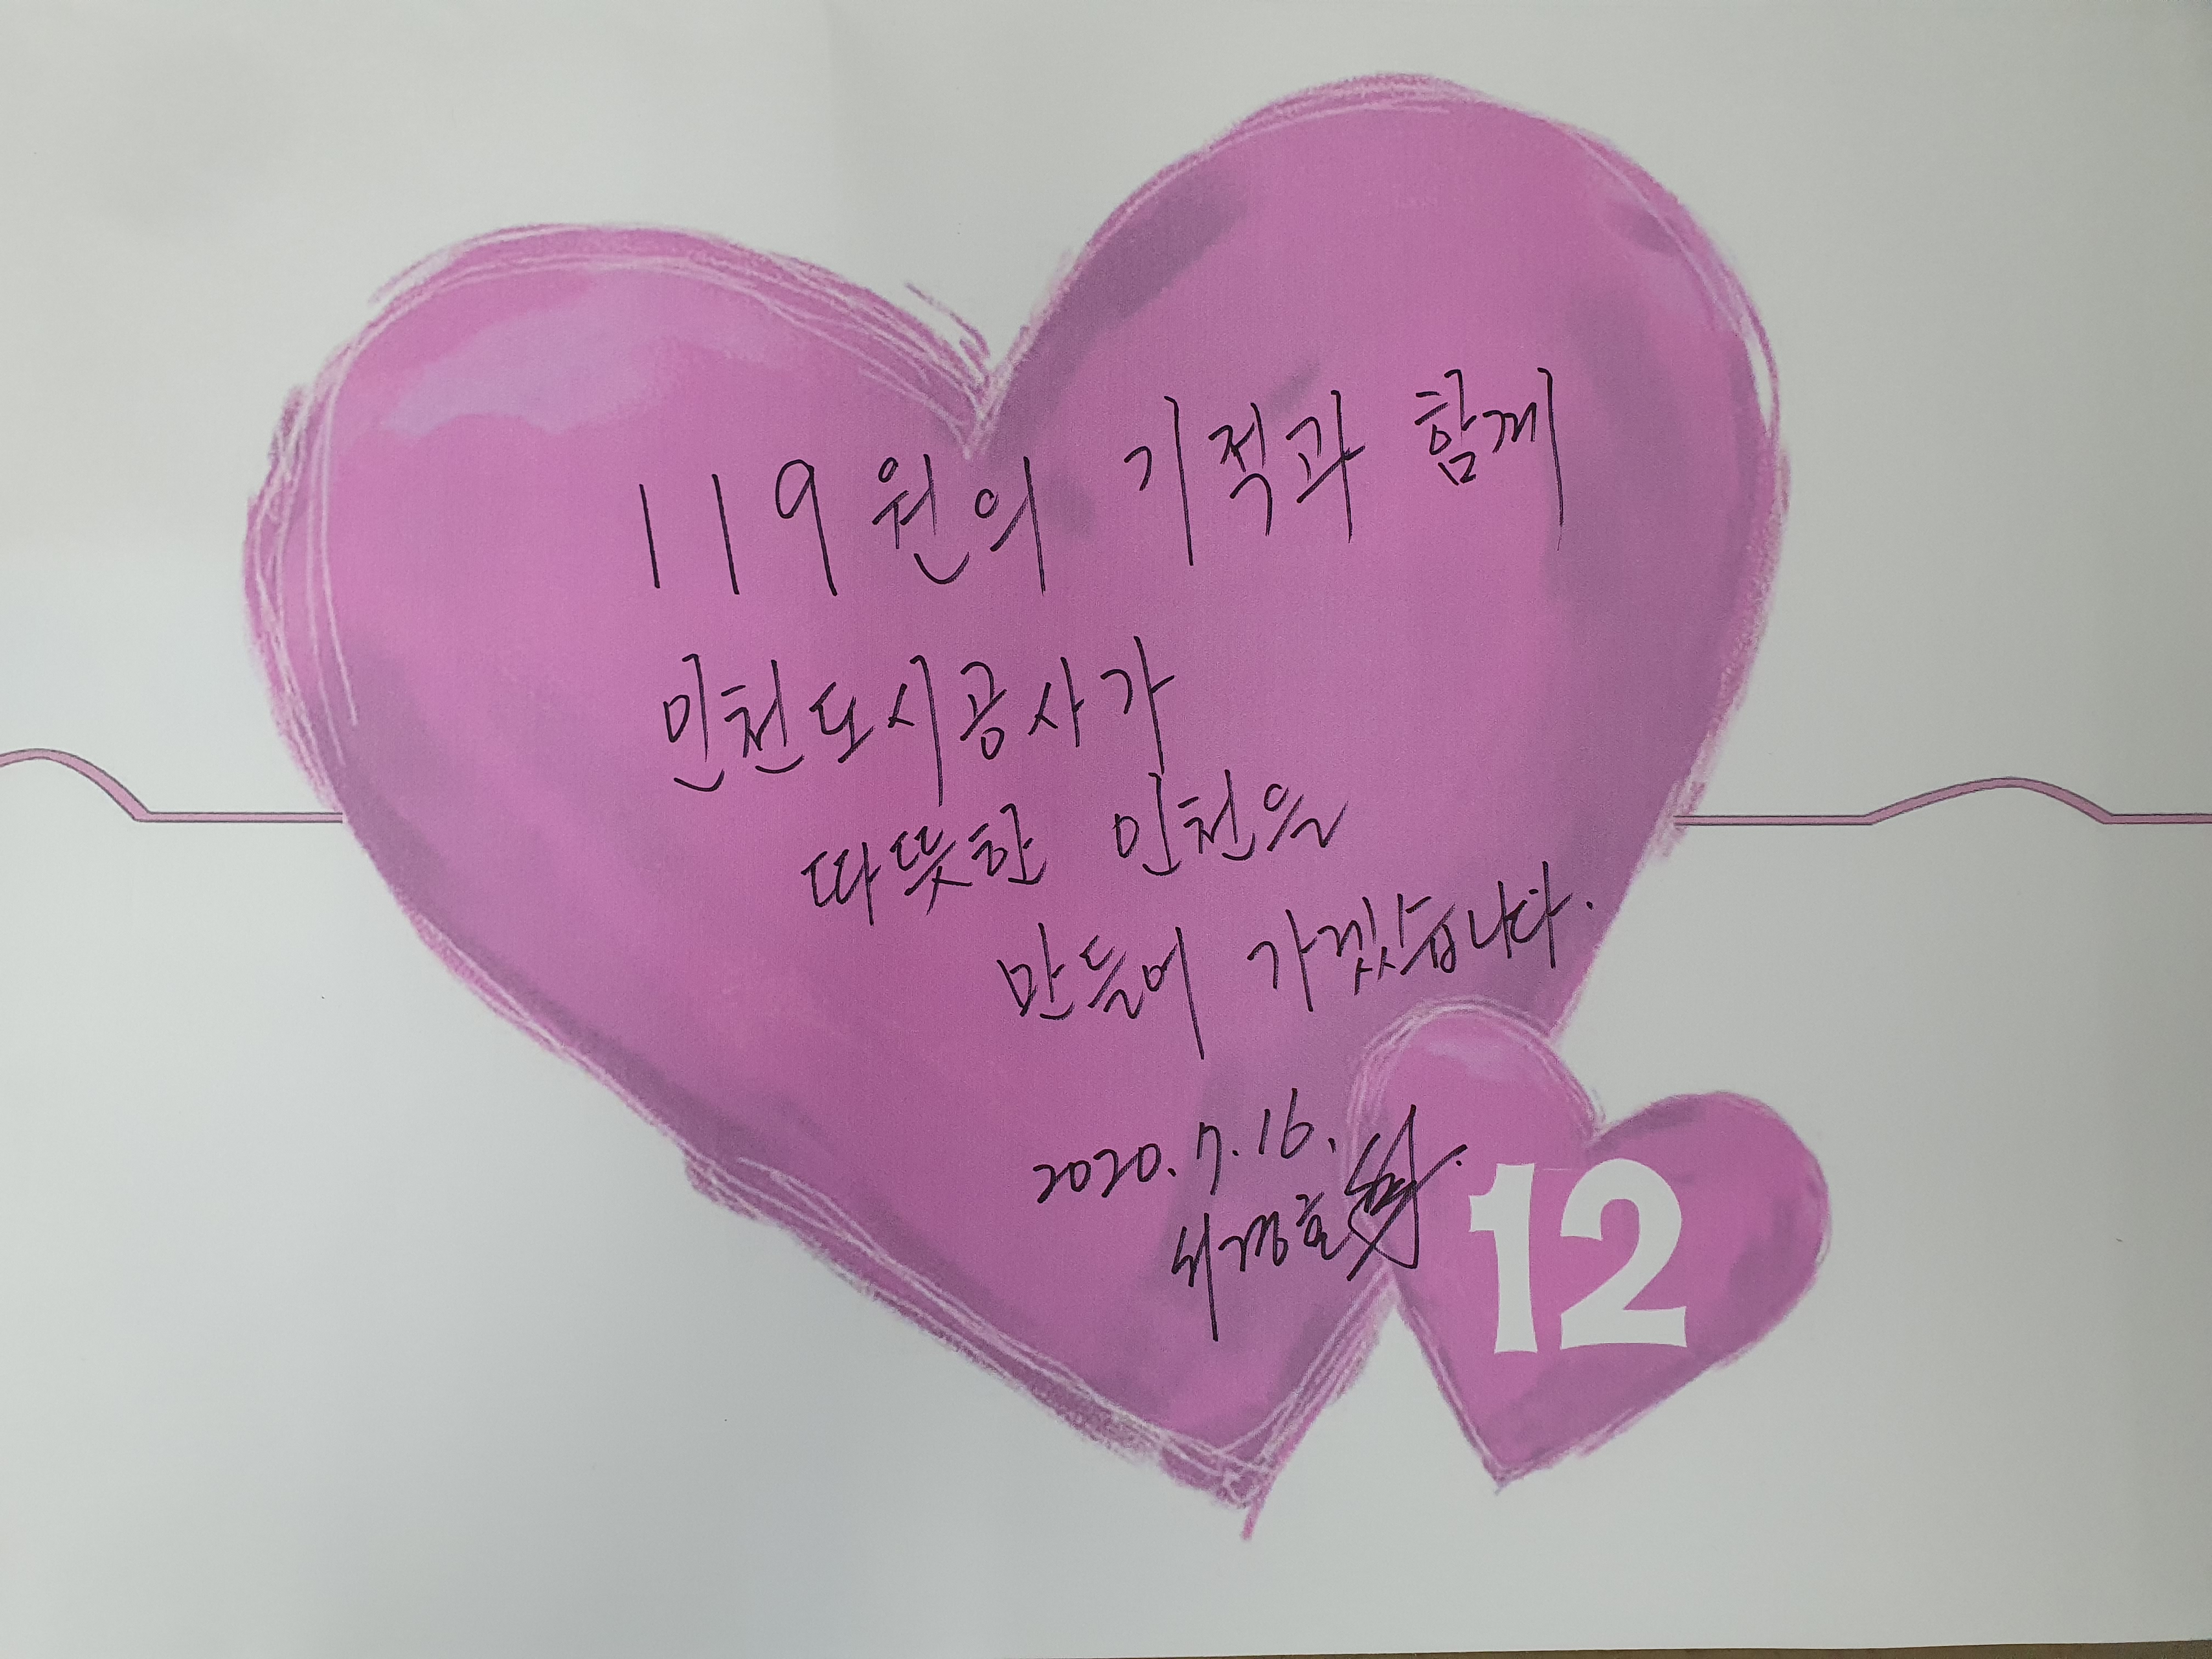 119원의 기적과 함께
인천도시공사가
따뜻한 인천을
만들어 가겠습니다.
2020.7.16.
서경호
12